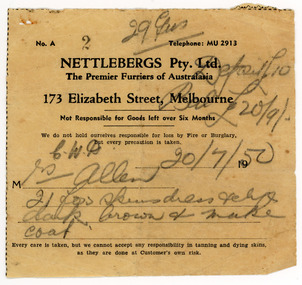 29 Gns
No. A 2 Telephone: MU 2913
NETTLEBERGS Pty. Ltd.
The Premier Furriers of Australasia
173 Elizabeth Street, Melbourne
Not Responsible for Goods left over Six Months
We do not hold ourselves responsible for loss by Fire or Burglary,
but every precaution is taken.
20/7/1950
M rs Allen
21 Fox skins dress & dye
dark brown & make
coat
Every care is taken, but we cannot accept any responsibility in tanning and dying skins,
as they are done at Customer's own risk.